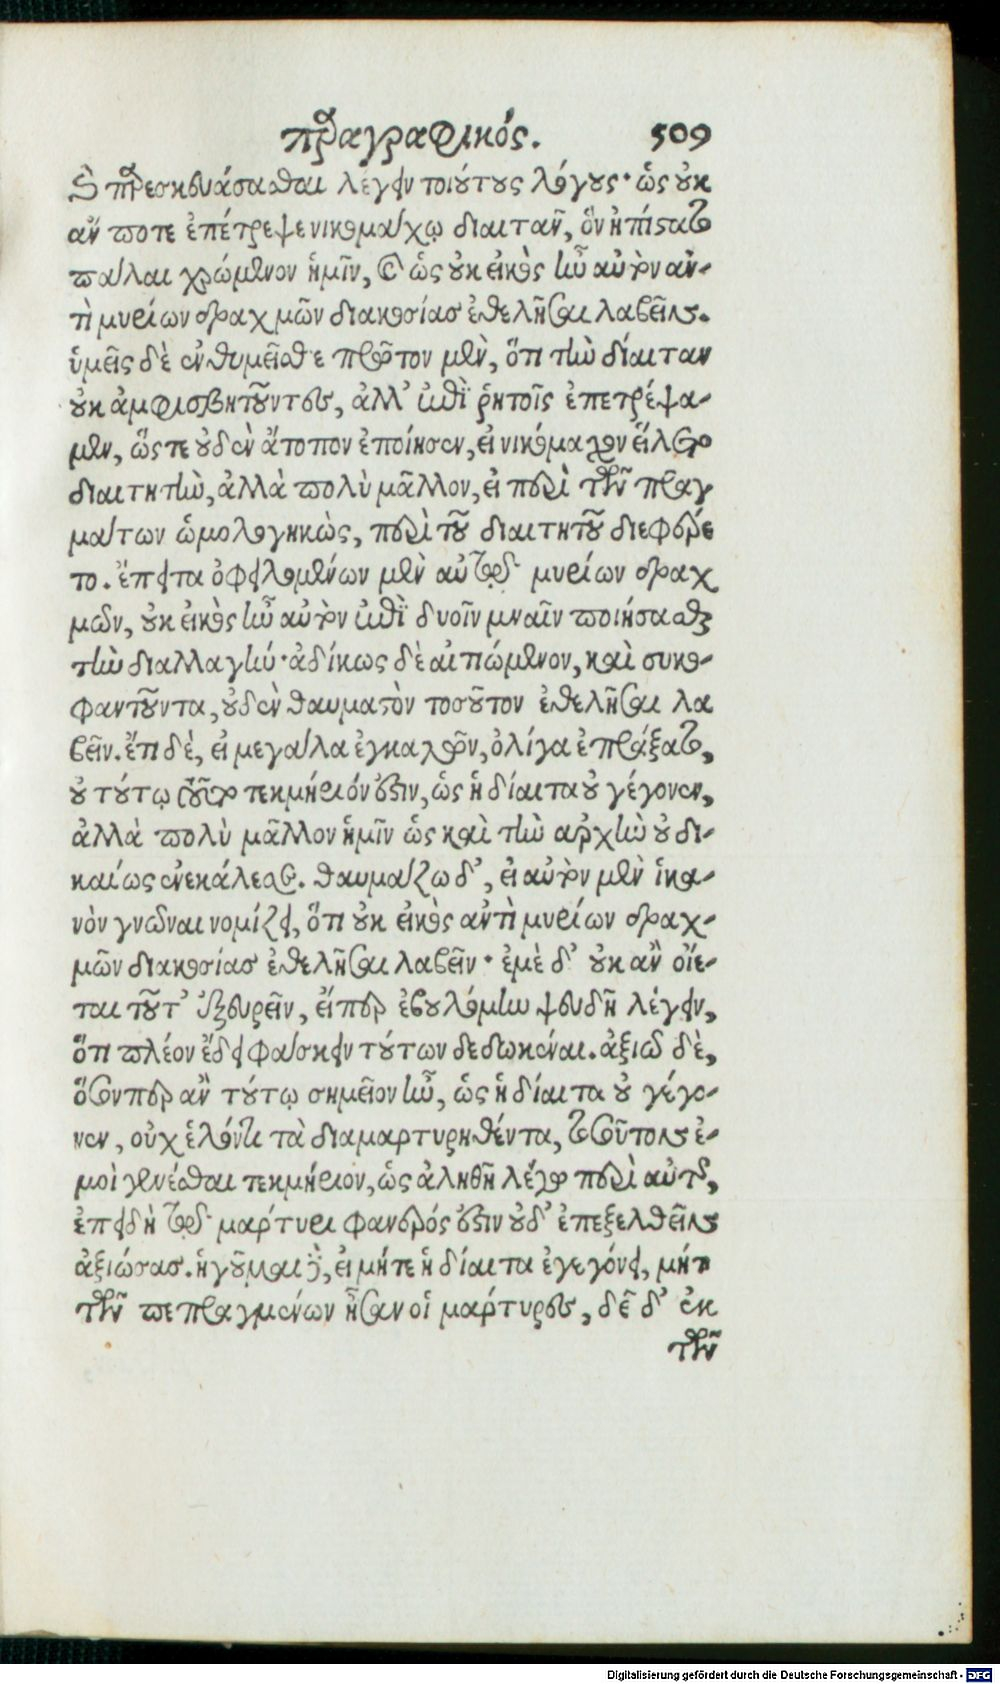 παραγραφικός. 509
ϗ παρεσκευάσασθαι λέγειν τοιούτους λόγους· ὡς οὐκ
ἄν ποτε ἐπέτρεψε νικομάχῳ διαιτᾶν, ὃν ἠπίστατο
πάλαι χρώμενον ἡμῖν, καὶ ὡς οὐκ εἰκὸς ἦν αὐτὸν ἀν-
τὶ μυρίων δραχμῶν διακοσίας ἐθελῆσαι λαβεῖν.
ὑμεῖς δὲ ἐνθυμεῖσθε πρῶτον μὲν, ὅτι τὴν δίαιταν
οὐκ ἀμφισβητοῦντες, ἀλλ' ἐπὶ ῥητοῖς ἐπετρέψα-
μεν, ὥςτε οὐδὲν ἄτοπον ἐποίησεν, εἰ νικόμαχον εἵλετο
διαιτητὴν, ἀλλὰ πολὺ μᾶλλον, εἰ περὶ τῶν πραγ
μάτων ὡμολογηκὼς, περὶ τοῦ διαιτητοῦ διεφέρε
το. ἔπειτα ὀφειλομένων μὲν αὐτῷ μυρίων δραχ
μῶν, οὐκ εἰκὸς ἦν αὐτὸν ἐπὶ δυοῖν μναῖν ποιήσασθαι
τὴν διαλλαγήν· ἀδίκως δὲ αἰτιώμενον, καὶ συκο-
φαντοῦντα, οὐδὲν θαυμαστὸν τοσοῦτον ἐθελῆσαι λα
βεῖν. ἔτι δὲ, εἰ μεγάλα ἐγκαλῶν, ὀλίγα ἐπράξατο,
οὐ τούτῳ τοῦτο τεκμήριόν ἐστιν, ὡς ἡ δίαιτα οὐ γέγονεν,
ἀλλὰ πολὺ μᾶλλον ἡμῖν ὡς καὶ τὴν ἀρχὴν οὐ δι-
καίως ἐνεκάλεσε. θαυμάζω δ', εἰ αὑτὸν μὲν ἱκα-
νὸν γνῶναι νομίζει, ὅτι οὐκ εἰκὸς ἀντὶ μυρίων δραχ-
μῶν διακοσίας ἐθελῆσαι λαβεῖν· ἐμὲ δ' οὐκ ἂν οἴε-
ται τοῦτ' ἐξευρεῖν, εἴπερ ἐβουλόμην ψευδῆ λέγειν,
ὅτι πλέον ἔδει φάσκειν τούτων δεδωκέναι. ἀξιῶ δὲ,
ὅσονπερ ἂν τούτῳ σημεῖον ἦν, ὡς ἡ δίαιτα οὐ γέγο-
νεν, οὐχ ἑλόντι τὰ διαμαρτυρηθέντα, τοσοῦτον ἐ-
μοὶ γενέσθαι τεκμήριον, ὡς ἀληθῆ λέγω περὶ αὐτοῦ,
ἐπειδὴ τῷ μάρτυρι φανερός ἐστιν οὐδ' ἐπεξελθεῖν
ἀξιώσας. ἡγοῦμαι δὲ, εἰ μήτε ἡ δίαιτα ἐγεγόνει, μήτε
τῶν πεπραγμένων ἦσαν οἱ μάρτυρες, δέῃ δ' ἐκ
τῶν